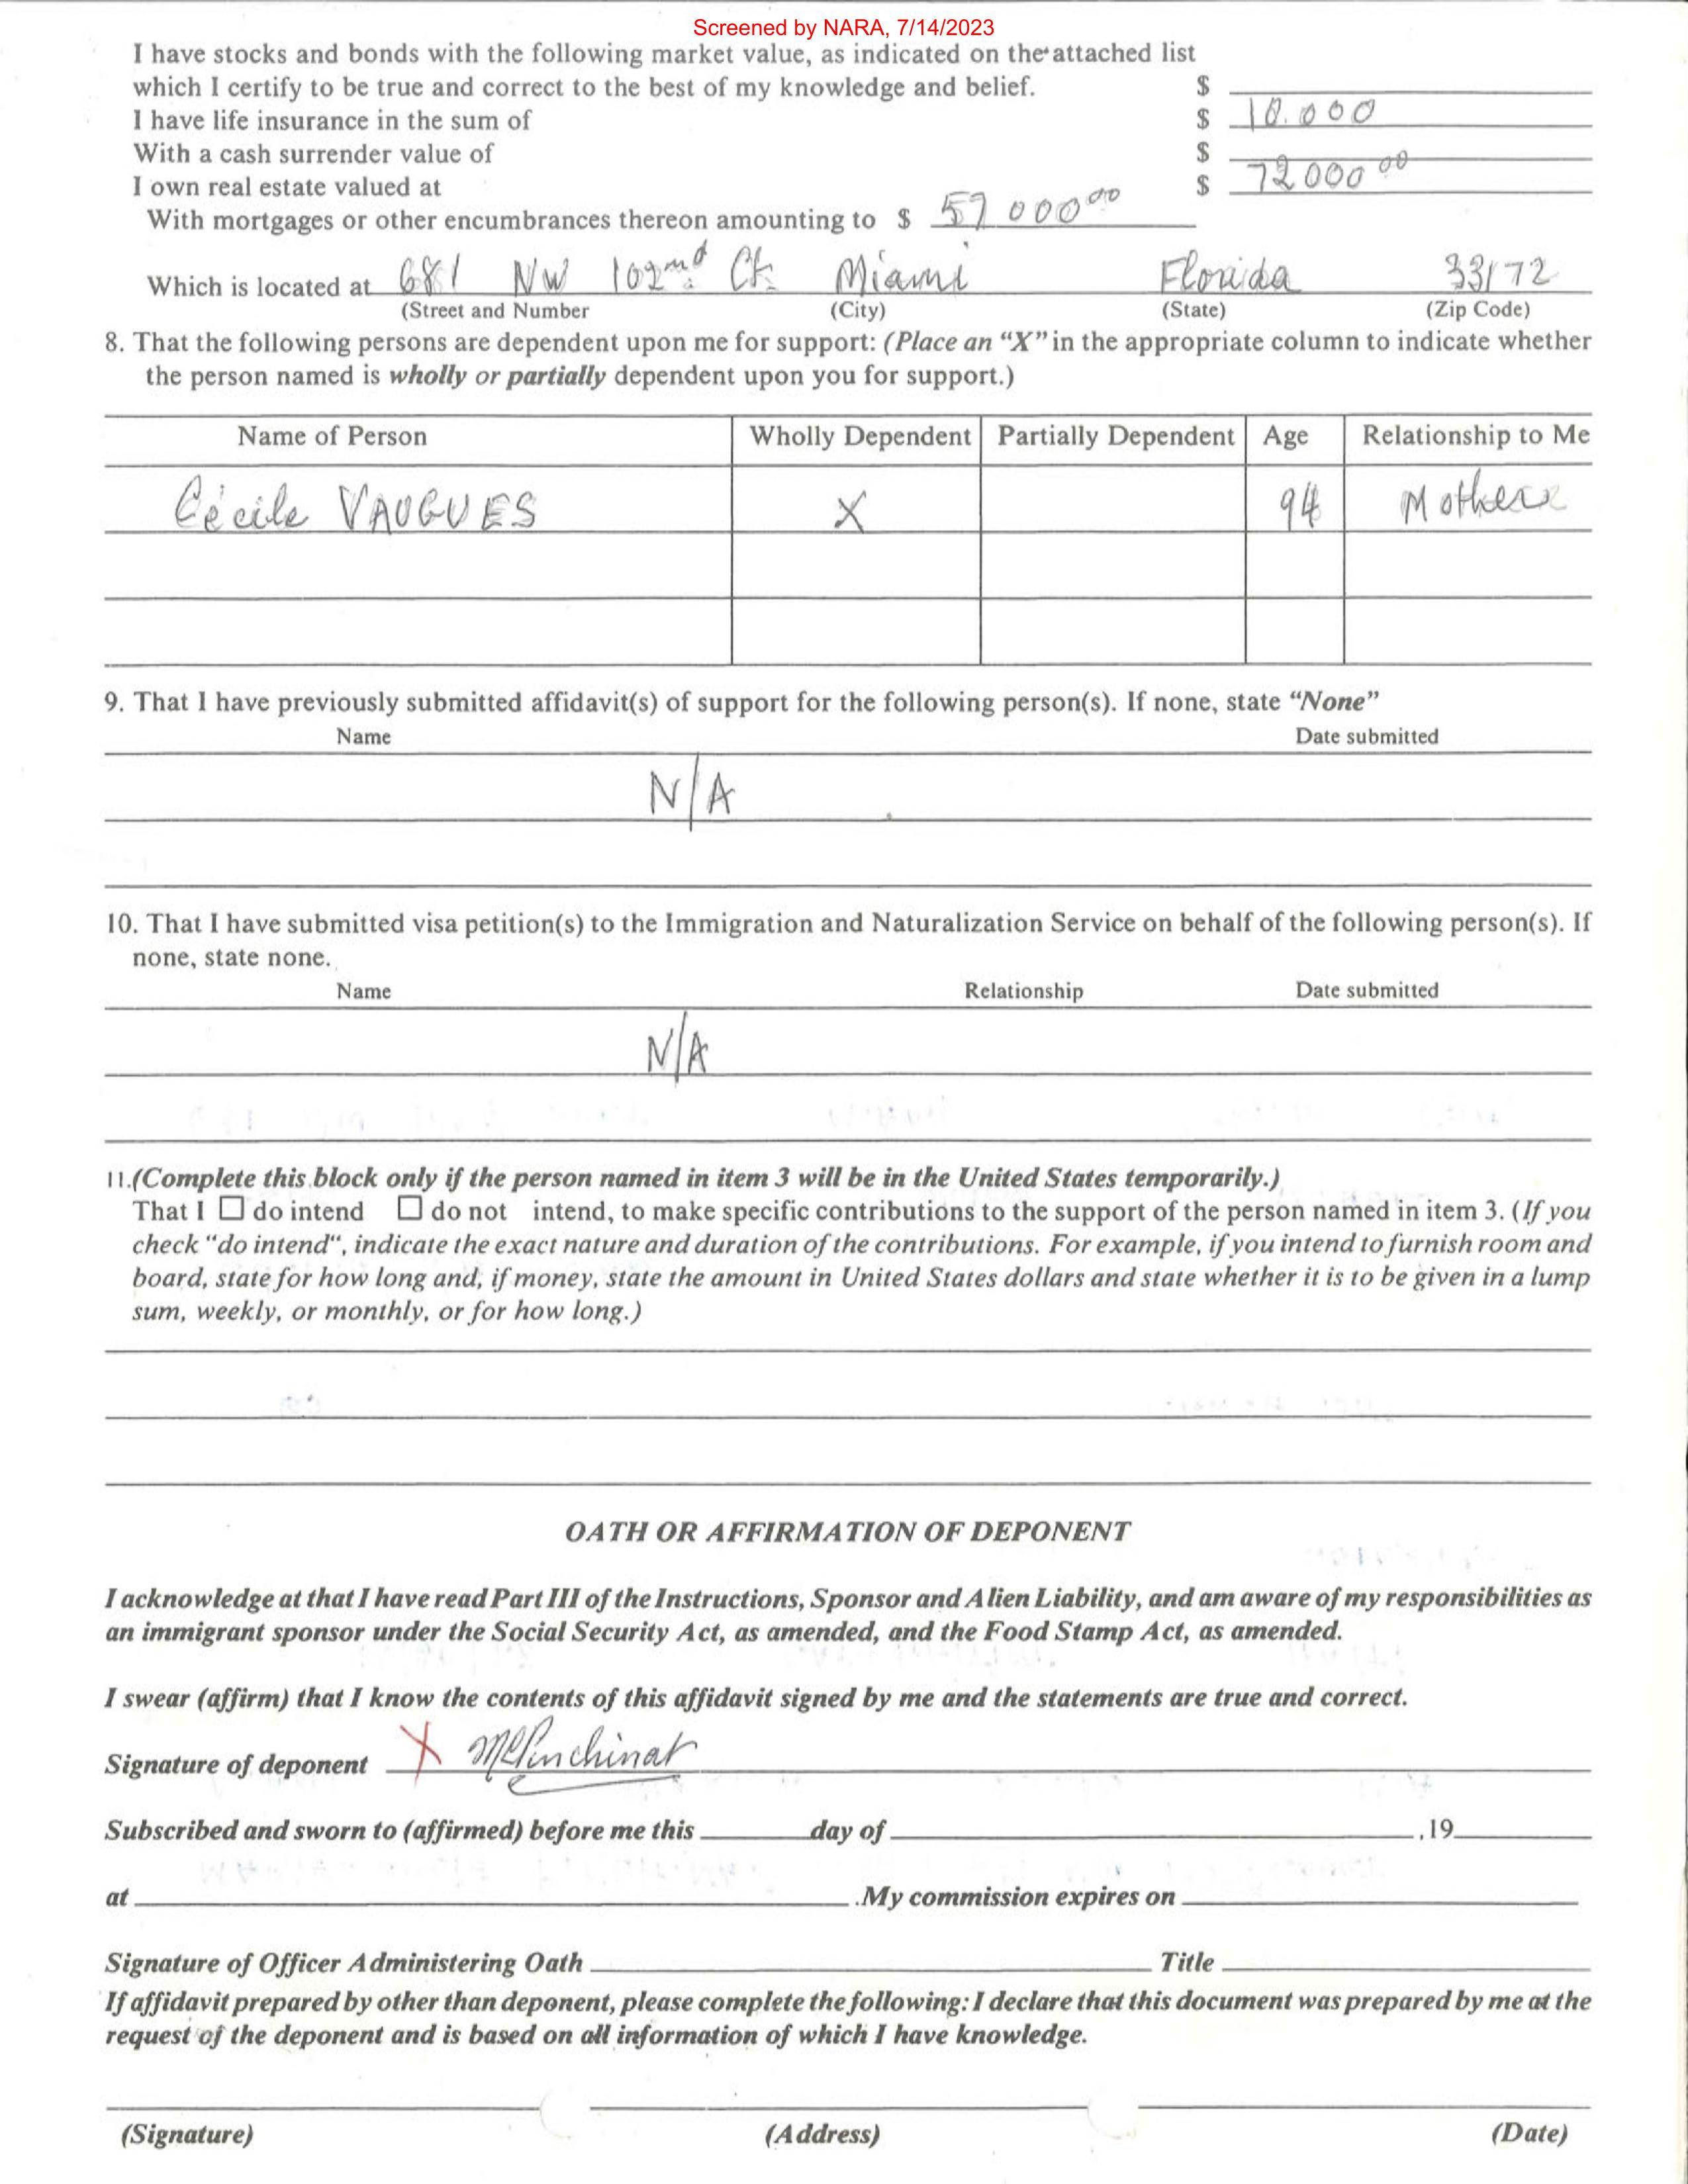 Screened by NARA, 7/14/2023
I have stocks and bonds with the following market value, as indicated on the attached list
which I certify to be true and correct to the best of my knowledge and belief. $
I have life insurance in the sum of $ 10.000
With a cash surrender value of $
I own real estate valued at $ 72 000 00
With mortgages or other encumbrances thereon amounting to $ 57 000 00
Which is located at 681 NW 102nd Ct. Miami Florida 33172
(Street and Number (City) (State) (Zip Code)
8. That the following persons are dependent upon me for support: (Place an “X” in the appropriate column to indicate whether
the person named is wholly or partially dependent upon you for support.)
Name of Person Wholly Dependent Partially Dependent Age Relationship to Me
Cécile VAUGUES X 94 Mother
9. That I have previously submitted affidavit(s) of support for the following person(s). If none, state “None”
Name Date submitted
N/A
10. That I have submitted visa petition(s) to the Immigration and Naturalization Service on behalf of the following person(s). If
none, state none.
Name Relationship Date submitted
N/A
11.(Complete this block only if the person named in item 3 will be in the United States temporarily.)
That I ☐ do intend ☐ do not intend, to make specific contributions to the support of the person named in item 3. (If you
check “do intend“, indicate the exact nature and duration of the contributions. For example, if you intend to furnish room and
board, state for how long and, if money, state the amount in United States dollars and state whether it is to be given in a lump
sum, weekly, or monthly, or for how long.)
OATH OR AFFIRMATION OF DEPONENT
I acknowledge at that I have read Part III of the Instructions, Sponsor and Alien Liability, and am aware of my responsibilities as
an immigrant sponsor under the Social Security Act, as amended, and the Food Stamp Act, as amended.
I swear (affirm) that I know the contents of this affidavit signed by me and the statements are true and correct.
Signature of deponent X McPinchinat
Subscribed and sworn to (affirmed) before me this day of ,19
at .My commission expires on
Signature of Officer Administering Oath Title
If affidavit prepared by other than deponent, please complete the following: I declare that this document was prepared by me at the
request of the deponent and is based on all information of which I have knowledge.
(Signature) (Address) (Date)